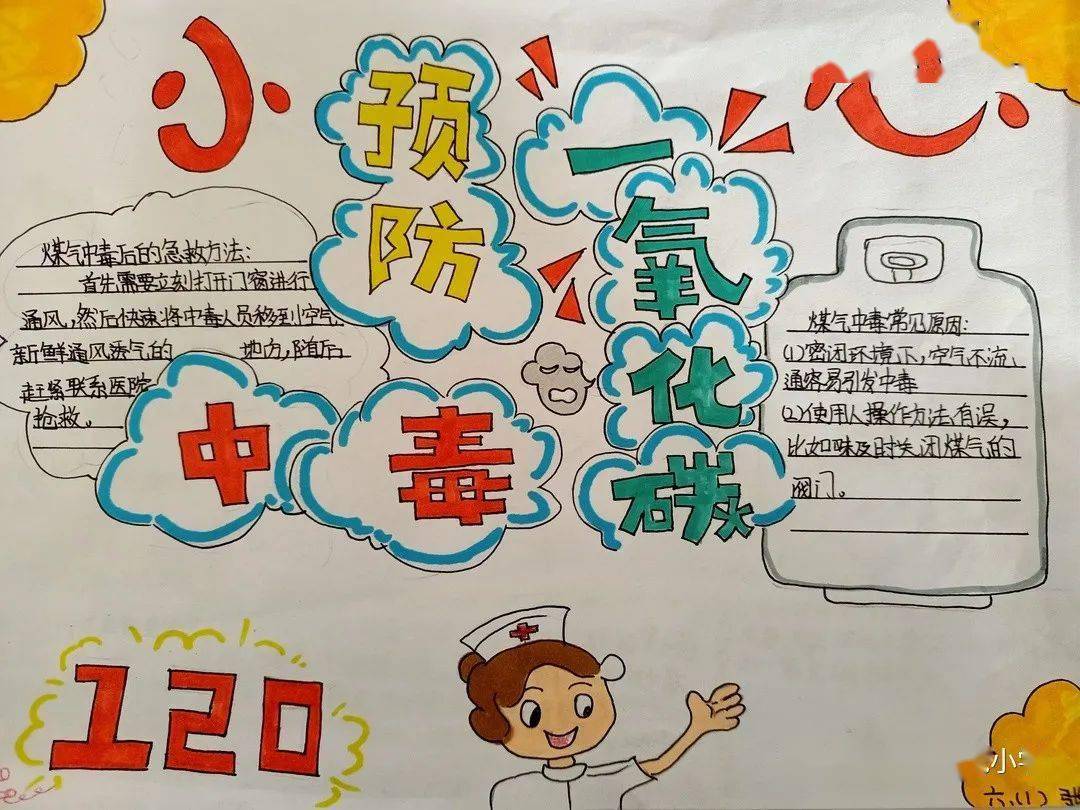 小心
预防
一氧化碳
中毒
煤气中毒后的急救方法:
首先需要立刻打开门窗进行
通风,然后快速将中毒人员移到空气
新鲜通风透气的 地方,随后
赶紧联系医院
抢救。
煤气中毒常见原因:
(1)密闭环境下,空气不流
通容易引发中毒
(2)使用人操作方法有误,
比如味及时关闭煤气的
阀门。
120
小